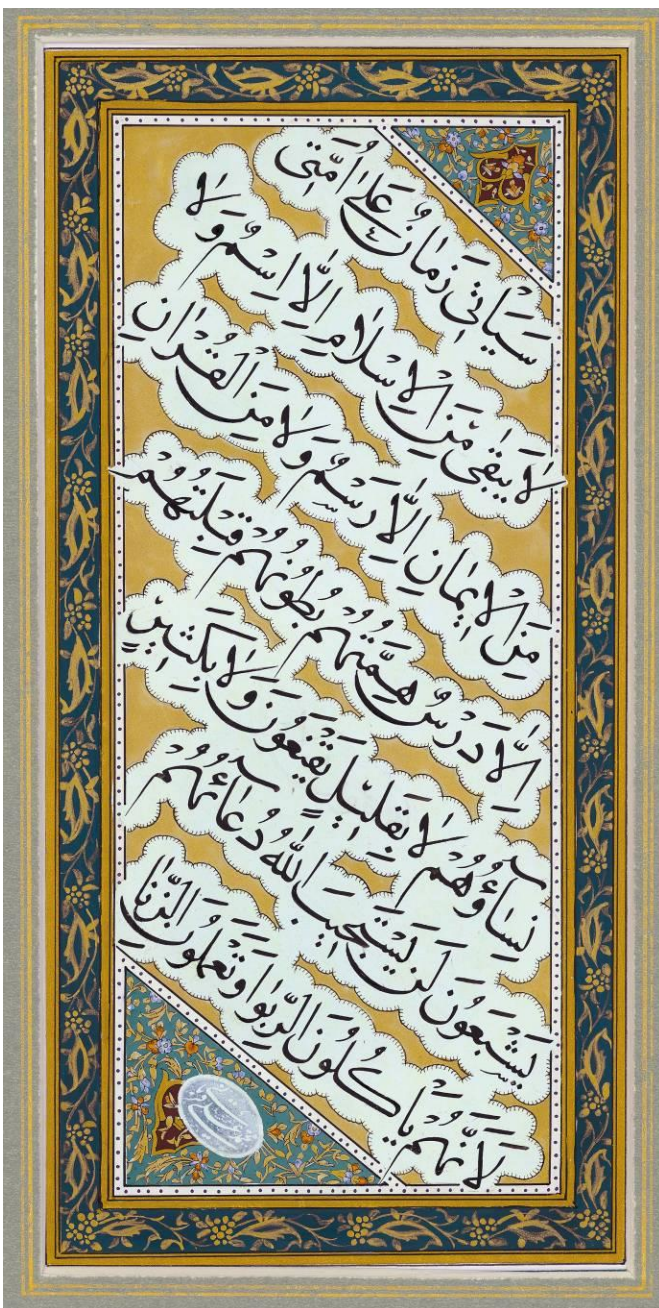 سَيَأتى زَمانٌ عَلىٰ اُمَّتى
لا يَبقىٰ مِنَ الاِسْلامِ اِلّا اِسْمٌ وَلا
مِنَ الاِيمانِ اِلّا رَسْمٌ وَلا مِنَ القُرْاٰنِ
اِلّا دَرْسٌ هِمَّتُهُمْ بُطُونُهُمْ قِبْلَتُهُمْ
نِسٰاؤُهُمْ لا بِقَلِيلٍ يَقْنَعُونَ وَلا بِكَثِيرٍ
يَشْبَعُونَ لَن يَسْتَجِيبَ اللهُ دُعٰائَهُمْ
لَاَنَّهُمْ يَاْكُلُونَ الرِّبَوا وَ يَعْمَلُونَ الزِّنا